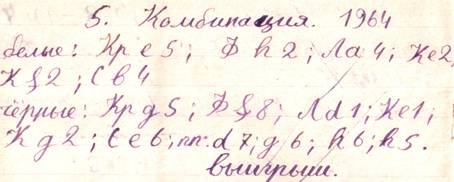 5. Комбинация. 1964
белые: Кре5; Фh2; Ла4; Ке2,
Кf2; Св4
чёрные: Крg5; Фf8; Лd1; Ке1;
Кg2; Се6; пп: d7; g6; h6; h5.
выигрыш.